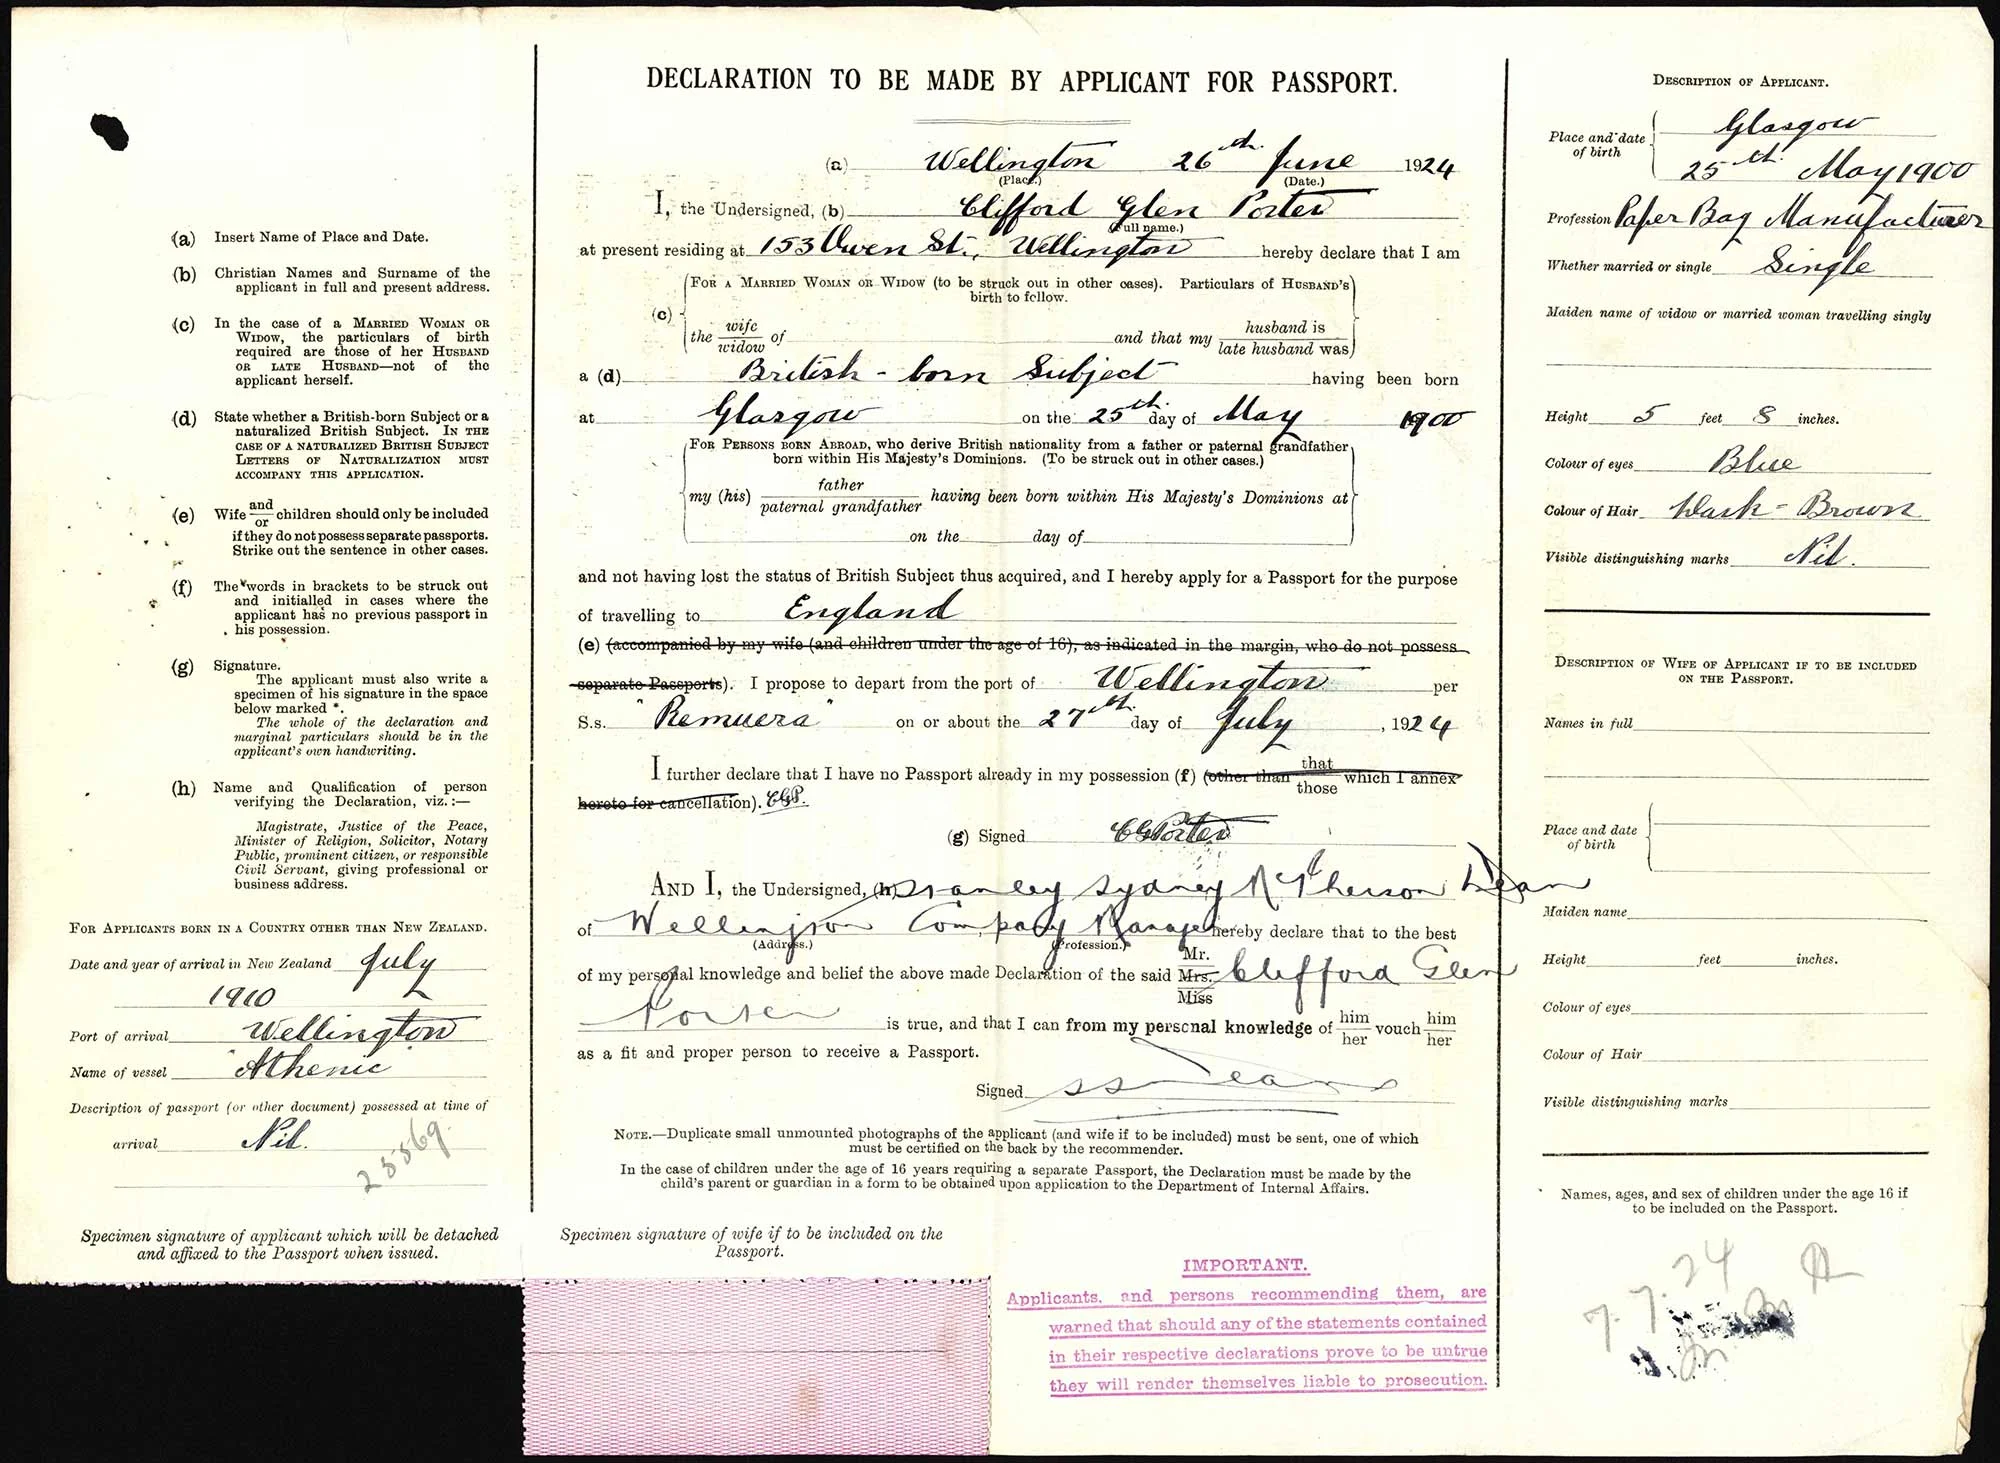 (a) Insert Name of Place and Date.
(b) Christian Names and Surname of the
applicant in full and present address.
(c) In the case of a MARRIED WOMAN OR
WIDOW, the particulars of birth
required are those of her HUSBAND
OR LATE HUSBAND—not of the
applicant herself.
(d) State whether a British-born Subject or a
naturalized British Subject. IN THE
CASE OF A NATURALIZED BRITISH SUBJECT
LETTERS OF NATURALIZATION MUST
ACCOMPANY THIS APPLICATION.
(e) Wife and/or children should only be included
if they do not possess separate passports.
Strike out the sentence in other cases.
(f) The words in brackets to be struck out
and initialled in cases where the
applicant has no previous passport in
his possession.
(g) Signature.
The applicant must also write a
specimen of his signature in the space
below marked *.
The whole of the declaration and
marginal particulars should be in the
applicant's own handwriting.
(h) Name and Qualification of person
verifying the Declaration, viz.:—
Magistrate, Justice of the Peace,
Minister of Religion, Solicitor, Notary
Public, prominent citizen, or responsible
Civil Servant, giving professional or
business address.
FOR APPLICANTS BORN IN A COUNTRY OTHER THAN NEW ZEALAND.
Date and year of arrival in New Zealand July
1910
Port of arrival Wellington
Name of vessel "Athenic"
Description of passport (or other document) possessed at time of
arrival Nil.
25569.
Specimen signature of applicant which will be detached
and affixed to the Passport when issued.
DECLARATION TO BE MADE BY APPLICANT FOR PASSPORT.
(a) Wellington 26th June 1924
(Place.) (Date.)
I, the Undersigned, (b) Clifford Glen Porter
(Full name.)
at present residing at 153 Owen St., Wellington hereby declare that I am
(c) FOR A MARRIED WOMAN OR WIDOW (to be struck out in other cases). Particulars of HUSBAND'S
birth to follow.
the wife/widow of and that my husband is/late husband was
a (d) British-born Subject having been born
at Glasgow on the 25th day of May 1900
FOR PERSONS BORN ABROAD, who derive British nationality from a father or paternal grandfather
born within His Majesty's Dominions. (To be struck out in other cases.)
my (his) father/paternal grandfather having been born within His Majesty's Dominions at
on the day of
and not having lost the status of British Subject thus acquired, and I hereby apply for a Passport for the purpose
of travelling to England
(e) (accompanied by my wife (and children under the age of 16), as indicated in the margin, who do not possess
separate Passports). I propose to depart from the port of Wellington per
S.s. "Remuera" on or about the 27th day of July, 1924
I further declare that I have no Passport already in my possession (f) (other than that/those which I annex
hereto for cancellation). CGP.
(g) Signed CGPorter
AND I, the Undersigned, (h) Stanley Sydney McPherson Dean
of Wellington Company Manager hereby declare that to the best
(Address.) (Profession.)
of my personal knowledge and belief the above made Declaration of the said Mr. Mrs. Miss Clifford Glen
Porter is true, and that I can from my personal knowledge of him/her vouch him/her
as a fit and proper person to receive a Passport.
Signed SSDean
NOTE.—Duplicate small unmounted photographs of the applicant (and wife if to be included) must be sent, one of which
must be certified on the back by the recommender.
In the case of children under the age of 16 years requiring a separate Passport, the Declaration must be made by the
child's parent or guardian in a form to be obtained upon application to the Department of Internal Affairs.
Specimen signature of wife if to be included on the
Passport.
IMPORTANT.
Applicants, and persons recommending them, are
warned that should any of the statements contained
in their respective declarations prove to be untrue
they will render themselves liable to prosecution.
DESCRIPTION OF APPLICANT.
Place and date
of birth
Glasgow
25th. May 1900
Profession Paper Bag Manufacturer
Whether married or single Single
Maiden name of widow or married woman travelling singly
Height 5 feet 8 inches.
Colour of eyes Blue
Colour of Hair Dark-Brown
Visible distinguishing marks Nil.
DESCRIPTION OF WIFE OF APPLICANT IF TO BE INCLUDED
ON THE PASSPORT.
Names in full
Place and date
of birth
Maiden name
Height feet inches.
Colour of eyes
Colour of Hair
Visible distinguishing marks
Names, ages, and sex of children under the age 16 if
to be included on the Passport.
7.7.24